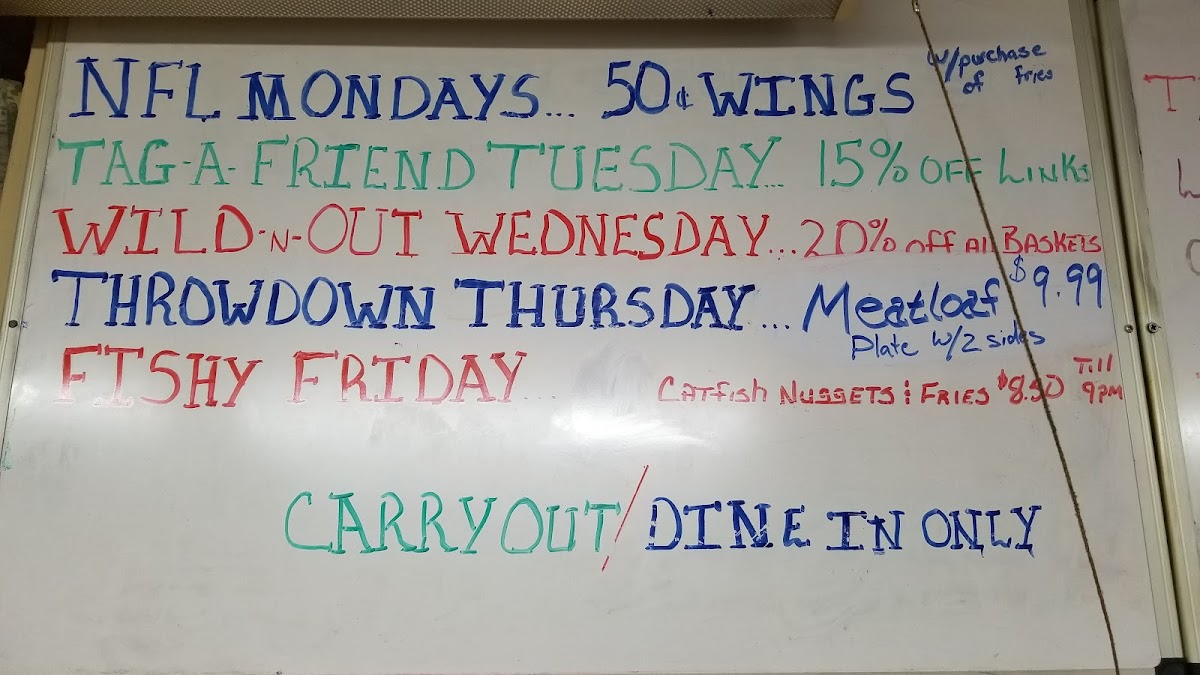 NFL MONDAYS... 50¢ WINGS w/purchase of fries
TAG-A-FRIEND TUESDAY... 15% OFF LINKS
WILD-N-OUT WEDNESDAY... 20% off All BASKETS
THROWDOWN THURSDAY... Meatloaf $9.99
Plate w/2 sides
FISHY FRIDAY... CATfish NUGGETS & FRIES $8.50 Till 9pm
CARRY OUT / DINE IN ONLY